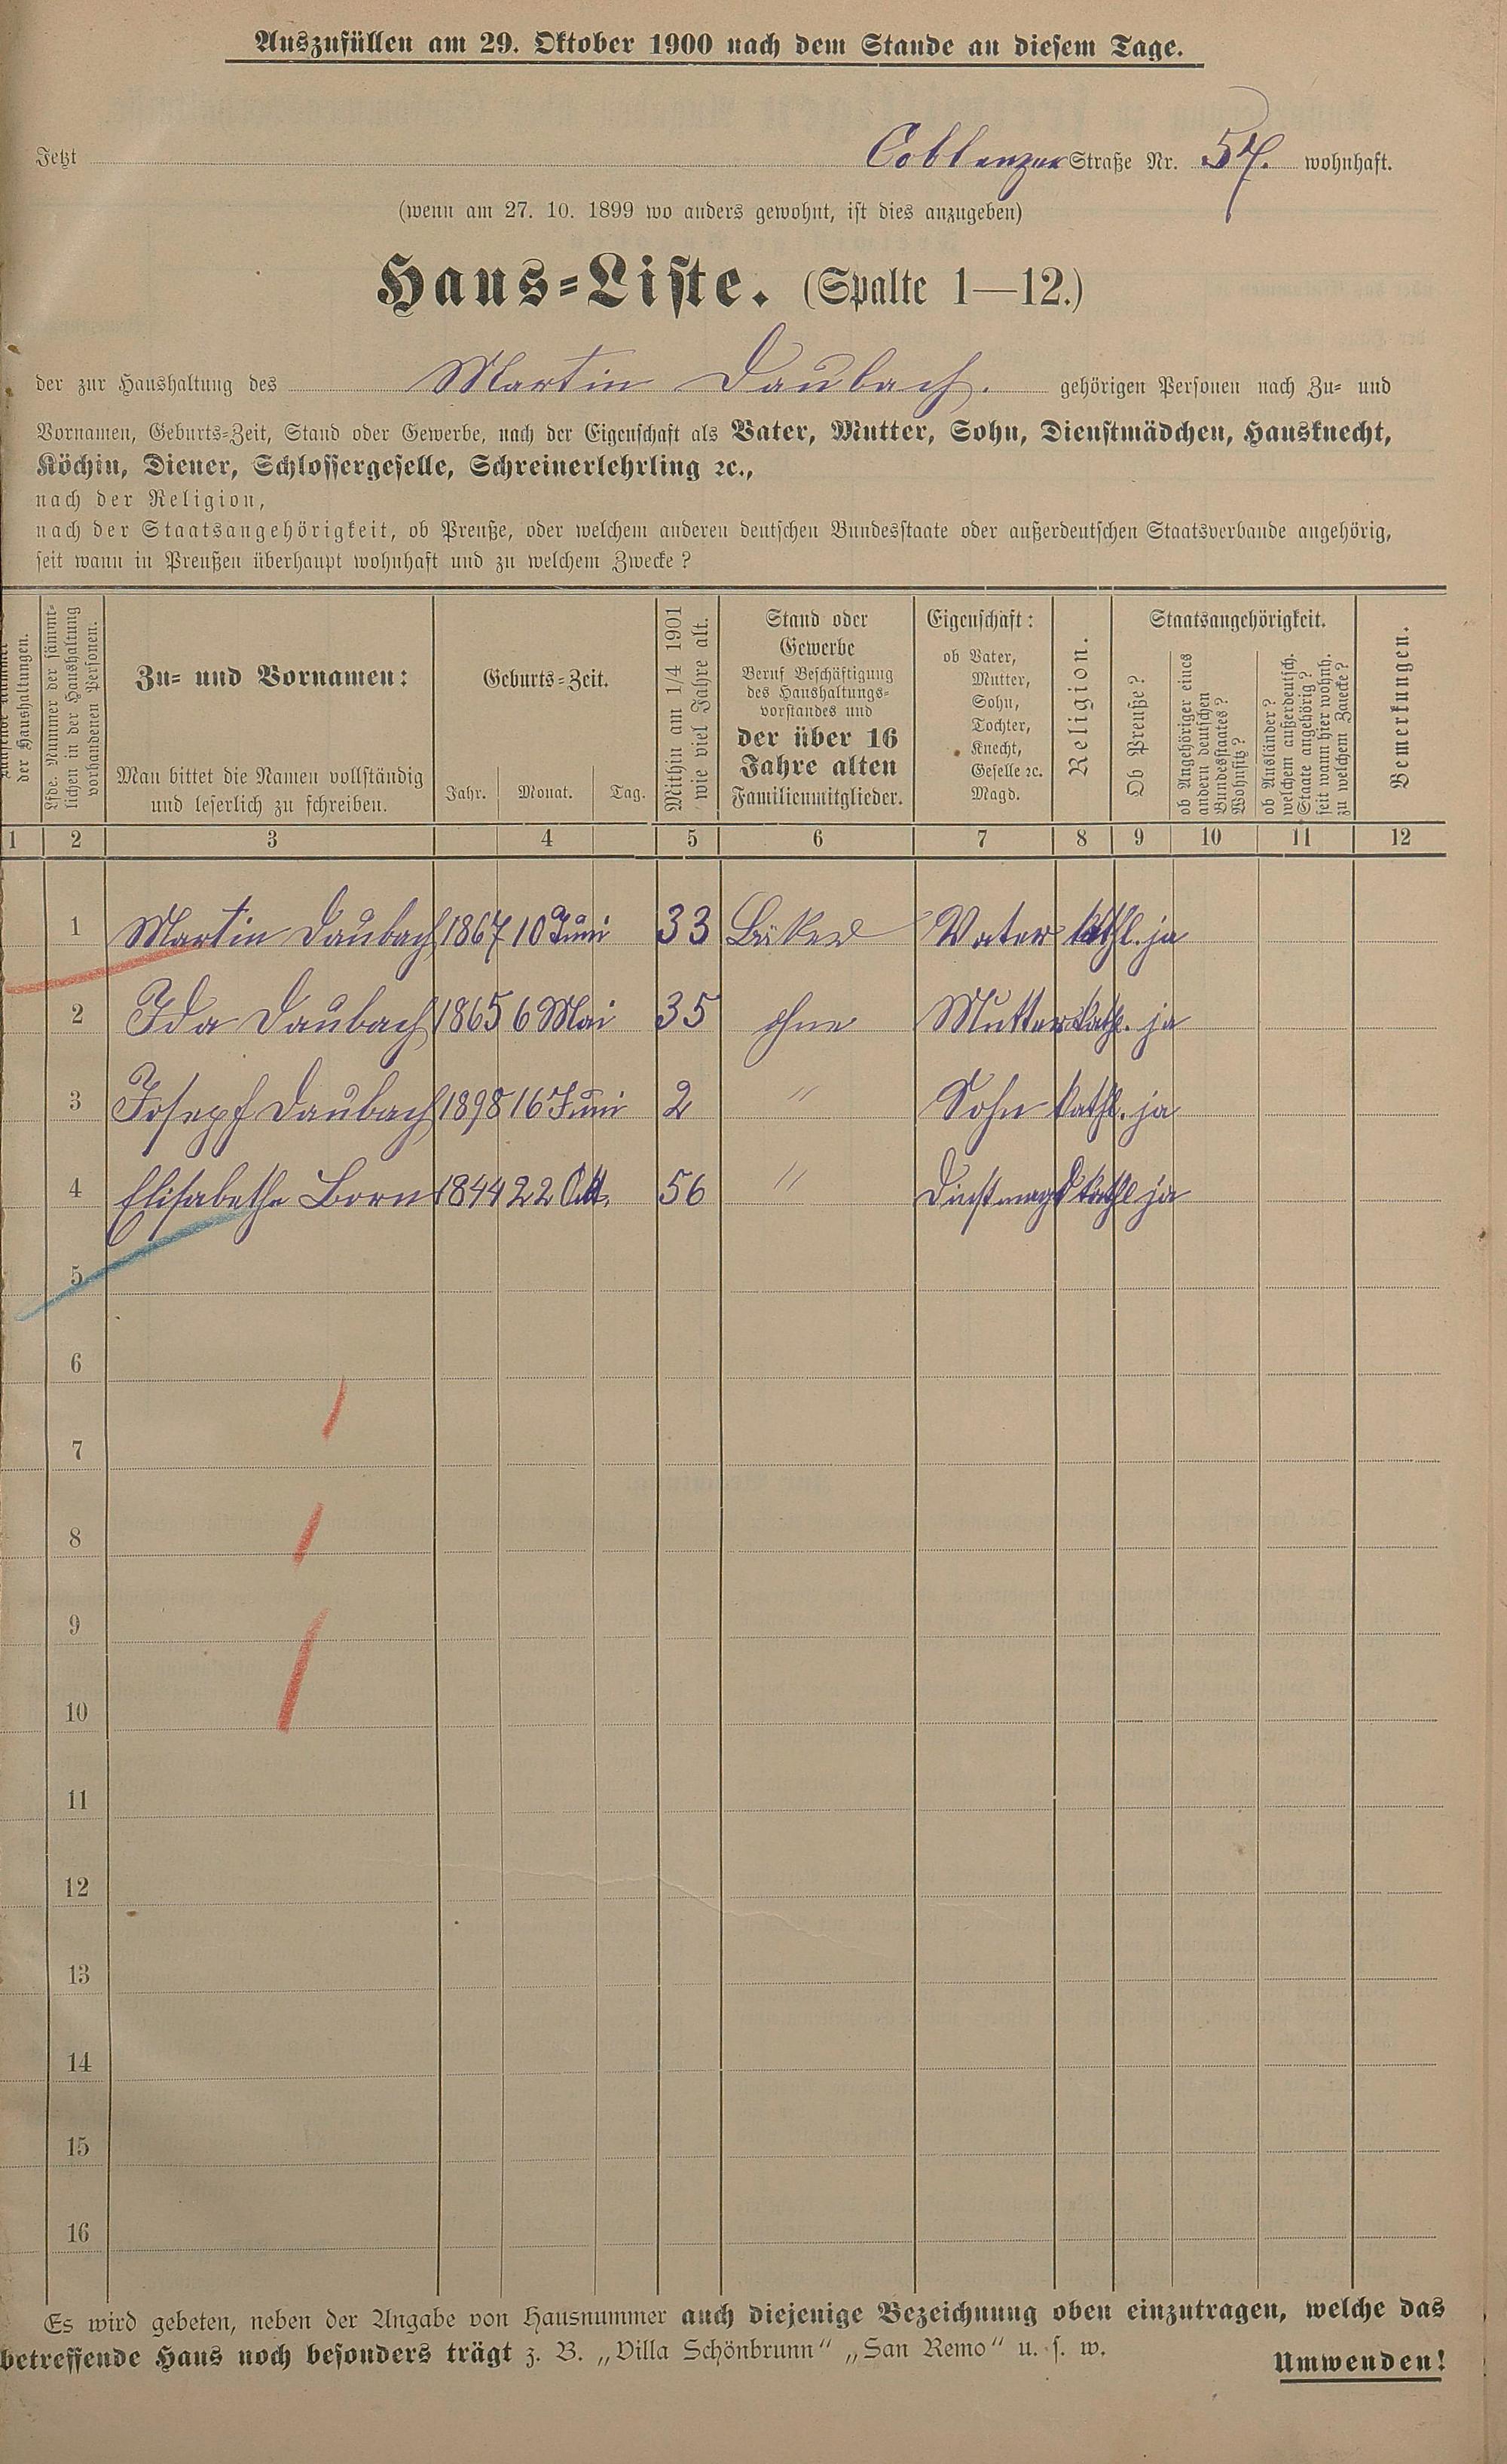 Auszufüllen am 29. Oktober 1900 nach dem Stande an diesem Tage.
Jetzt Coblenzer Straße Nr. 57. wohnhaft.
(wenn am 27. 10. 1899 wo anders gewohnt, ist dies anzugeben)
Haus=Liste. (Spalte 1—12.)
der zur Haushaltung des Martin Daubach. gehörigen Personen nach Zu= und
Vornamen, Geburts=Zeit, Stand oder Gewerbe, nach der Eigenschaft als Vater, Mutter, Sohn, Dienstmädchen, Hausknecht,
Köchin, Diener, Schlossergeselle, Schreinerlehrling ꝛc.,
nach der Religion,
nach der Staatsangehörigkeit, ob Preuße, oder welchem anderen deutschen Bundesstaate oder außerdeutschen Staatsverbande angehörig,
seit wann in Preußen überhaupt wohnhaft und zu welchem Zwecke?
der Haushaltungen.
Lfde. Nummer der sämmt-
lichen in der Haushaltung
vorhandenen Personen.
Zu= und Vornamen:
Man bittet die Namen vollständig
und leserlich zu schreiben.
Geburts=Zeit.
Jahr. Monat. Tag.
Mithin am 1/4 1901
wie viel Jahre alt.
Stand oder
Gewerbe
Beruf Beschäftigung
des Haushaltungs-
vorstandes und
der über 16
Jahre alten
Familienmitglieder.
Eigenschaft:
ob Vater,
Mutter,
Sohn,
Tochter,
Knecht,
Geselle ꝛc.
Magd.
Religion.
Staatsangehörigkeit.
Ob Preuße?
ob Angehöriger eines
andern deutschen
Bundesstaates?
Wohnsitz?
ob Ausländer?
welchem außerdeutsch.
Staate angehörig?
seit wann hier wohnh.
zu welchem Zwecke?
Bemerkungen.
1 2 3 4 5 6 7 8 9 10 11 12
1 Martin Daubach 1867 10 Juni 33 Bäker Vater kathl. ja
2 Ida Daubach 1865 6 Mai 35 ohne Mutter kathl. ja
3 Josepf Daubach 1898 16 Juni 2 " Sohn kathl. ja
4 Elisabethe Born 1844 22 Okt. 56 " Dinstmagd kathl ja
5
6
7
8
9
10
11
12
13
14
15
16
Es wird gebeten, neben der Angabe von Hausnummer auch diejenige Bezeichnung oben einzutragen, welche das
betreffende Haus noch besonders trägt z. B. „Villa Schönbrunn" „San Remo" u. s. w.
Umwenden!